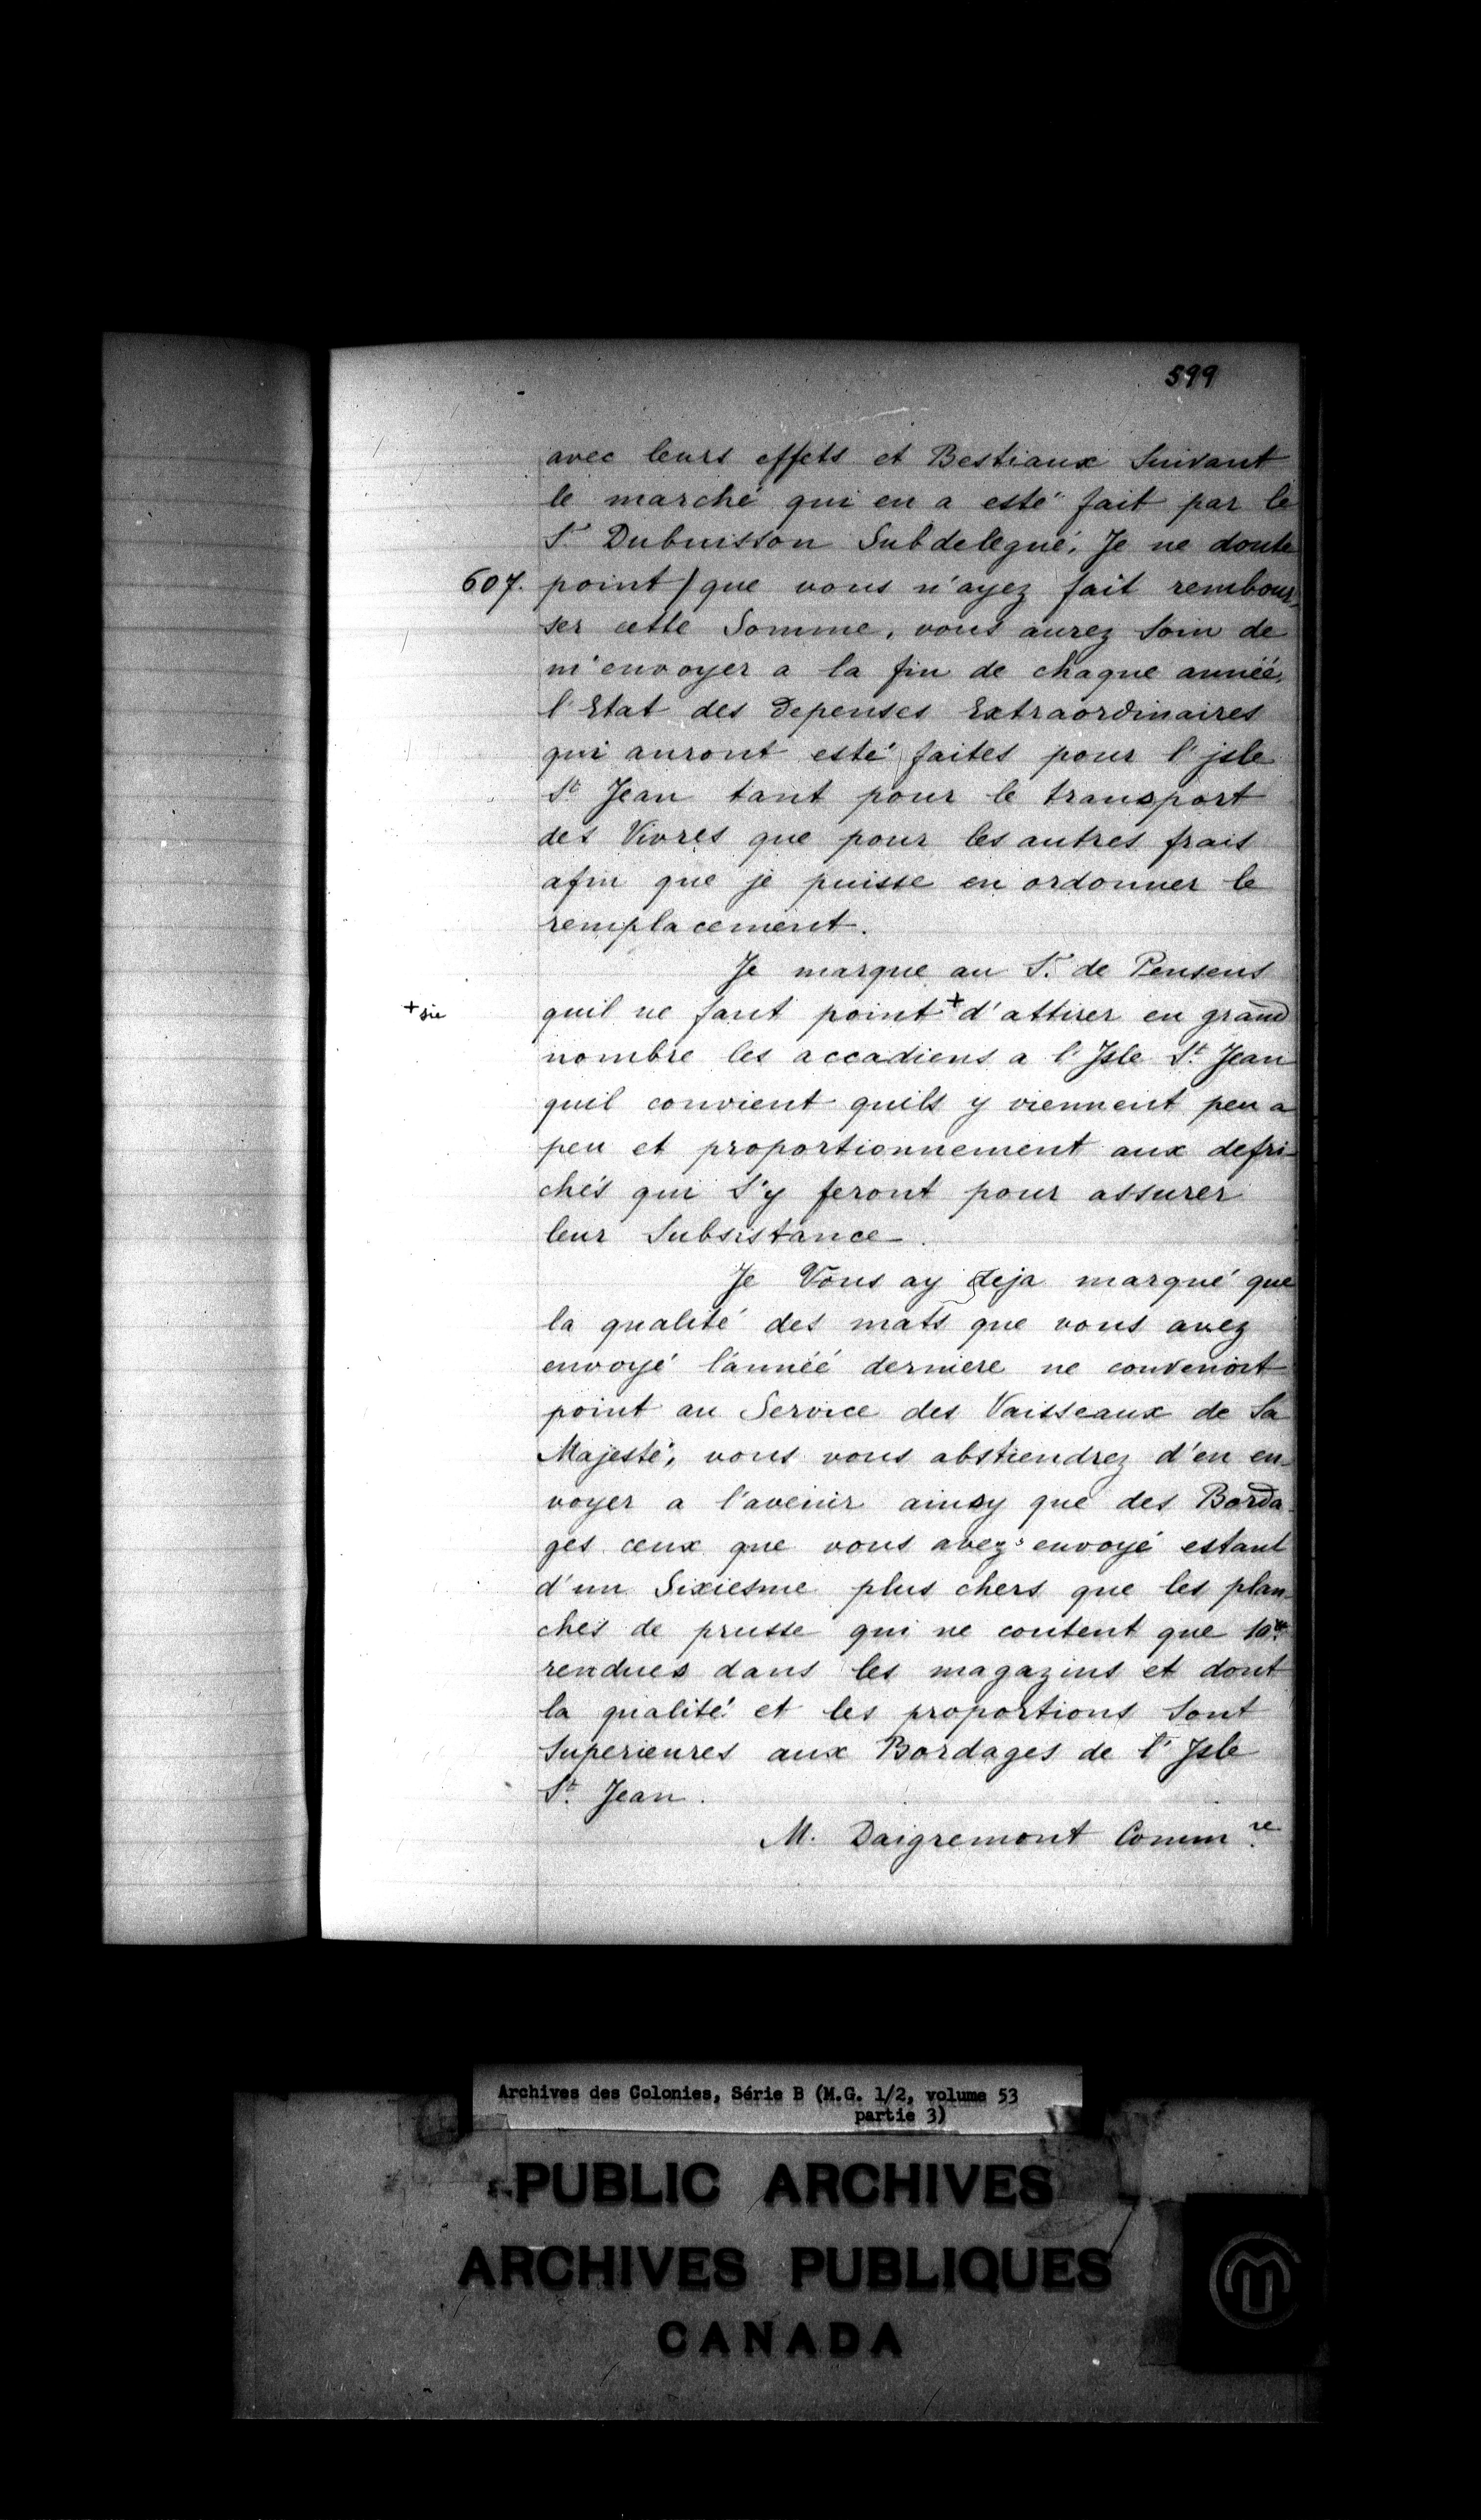 599
avec leurs effets et Bestiaux Suivant
le marché qui en a esté fait par le
S.r Dubuisson Subdelegué. Je ne doute
607. point / que vous n'ayez fait rembour-
ser cette Somme, vous aurez Soin de
m'envoyer a la fin de chaque année,
l'Etat des Depenses Extraordinaires
qui auront esté faites pour l'jsle
St. Jean tant pour le transport
des Vivres que pour les autres frais
afin que je puisse en ordonner le
remplacement.
Je marque au S.r de Pensens
+ sic quil ne faut point + d'attirer en grand
nombre les accadiens a l'Jsle St. Jean
quil convient quils y viennent peu a
peu et proportionnement aux defri-
chés qui S'y feront pour assurer
leur Subsistance.
Je Vous ay deja marqué que
la qualité des mats que vous avez
envoyé l'année derniere ne convenoit
point au Service des Vaisseaux de Sa
Majesté, vous vous abstiendrez d'en en-
voyer a l'avenir ainsy que des Borda-
ges ceux que vous avez envoyé estant
d'un Sixiesme plus chers que les plan-
ches de prusse qui ne coutent que 10
rendues dans les magazins et dont
la qualité et les proportions Sont
Superieures aux Bordages de l'Jsle
St. Jean.
M. Daigremont Comm.re
Archives des Colonies, Série B (M.G. 1/2, volume 53
partie 3)
PUBLIC ARCHIVES
ARCHIVES PUBLIQUES
CANADA